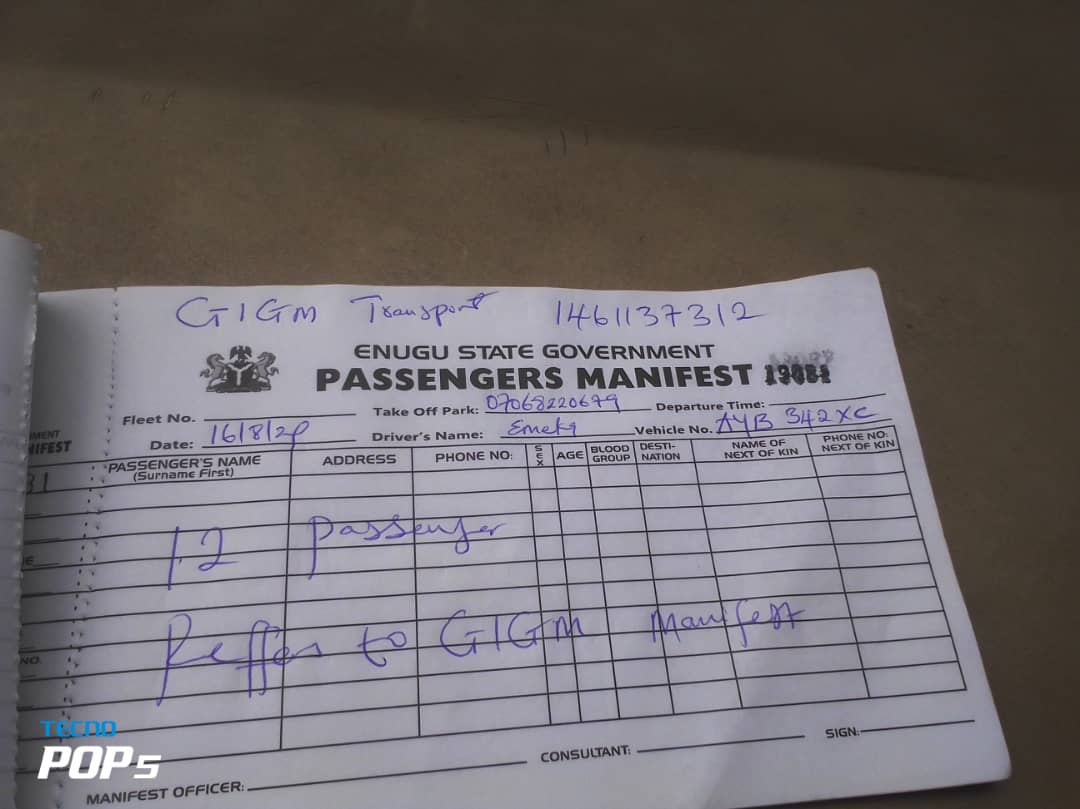 GIGM Transport 1461137312
ENUGU STATE GOVERNMENT
PASSENGERS MANIFEST
Fleet No. Take Off Park: 07068220679 Departure Time:
Date: 16/8/2 Driver's Name: Emeka Vehicle No. AYB 342XC
PASSENGER'S NAME (Surname First) ADDRESS PHONE NO: SEX AGE BLOOD GROUP DESTI-NATION NAME OF NEXT OF KIN PHONE NO: NEXT OF KIN
12 passenger
Reffer to GIGM Manifest
MANIFEST OFFICER: CONSULTANT: SIGN:
MENT
IFEST
31
E
NO.
TECNO
POP 5